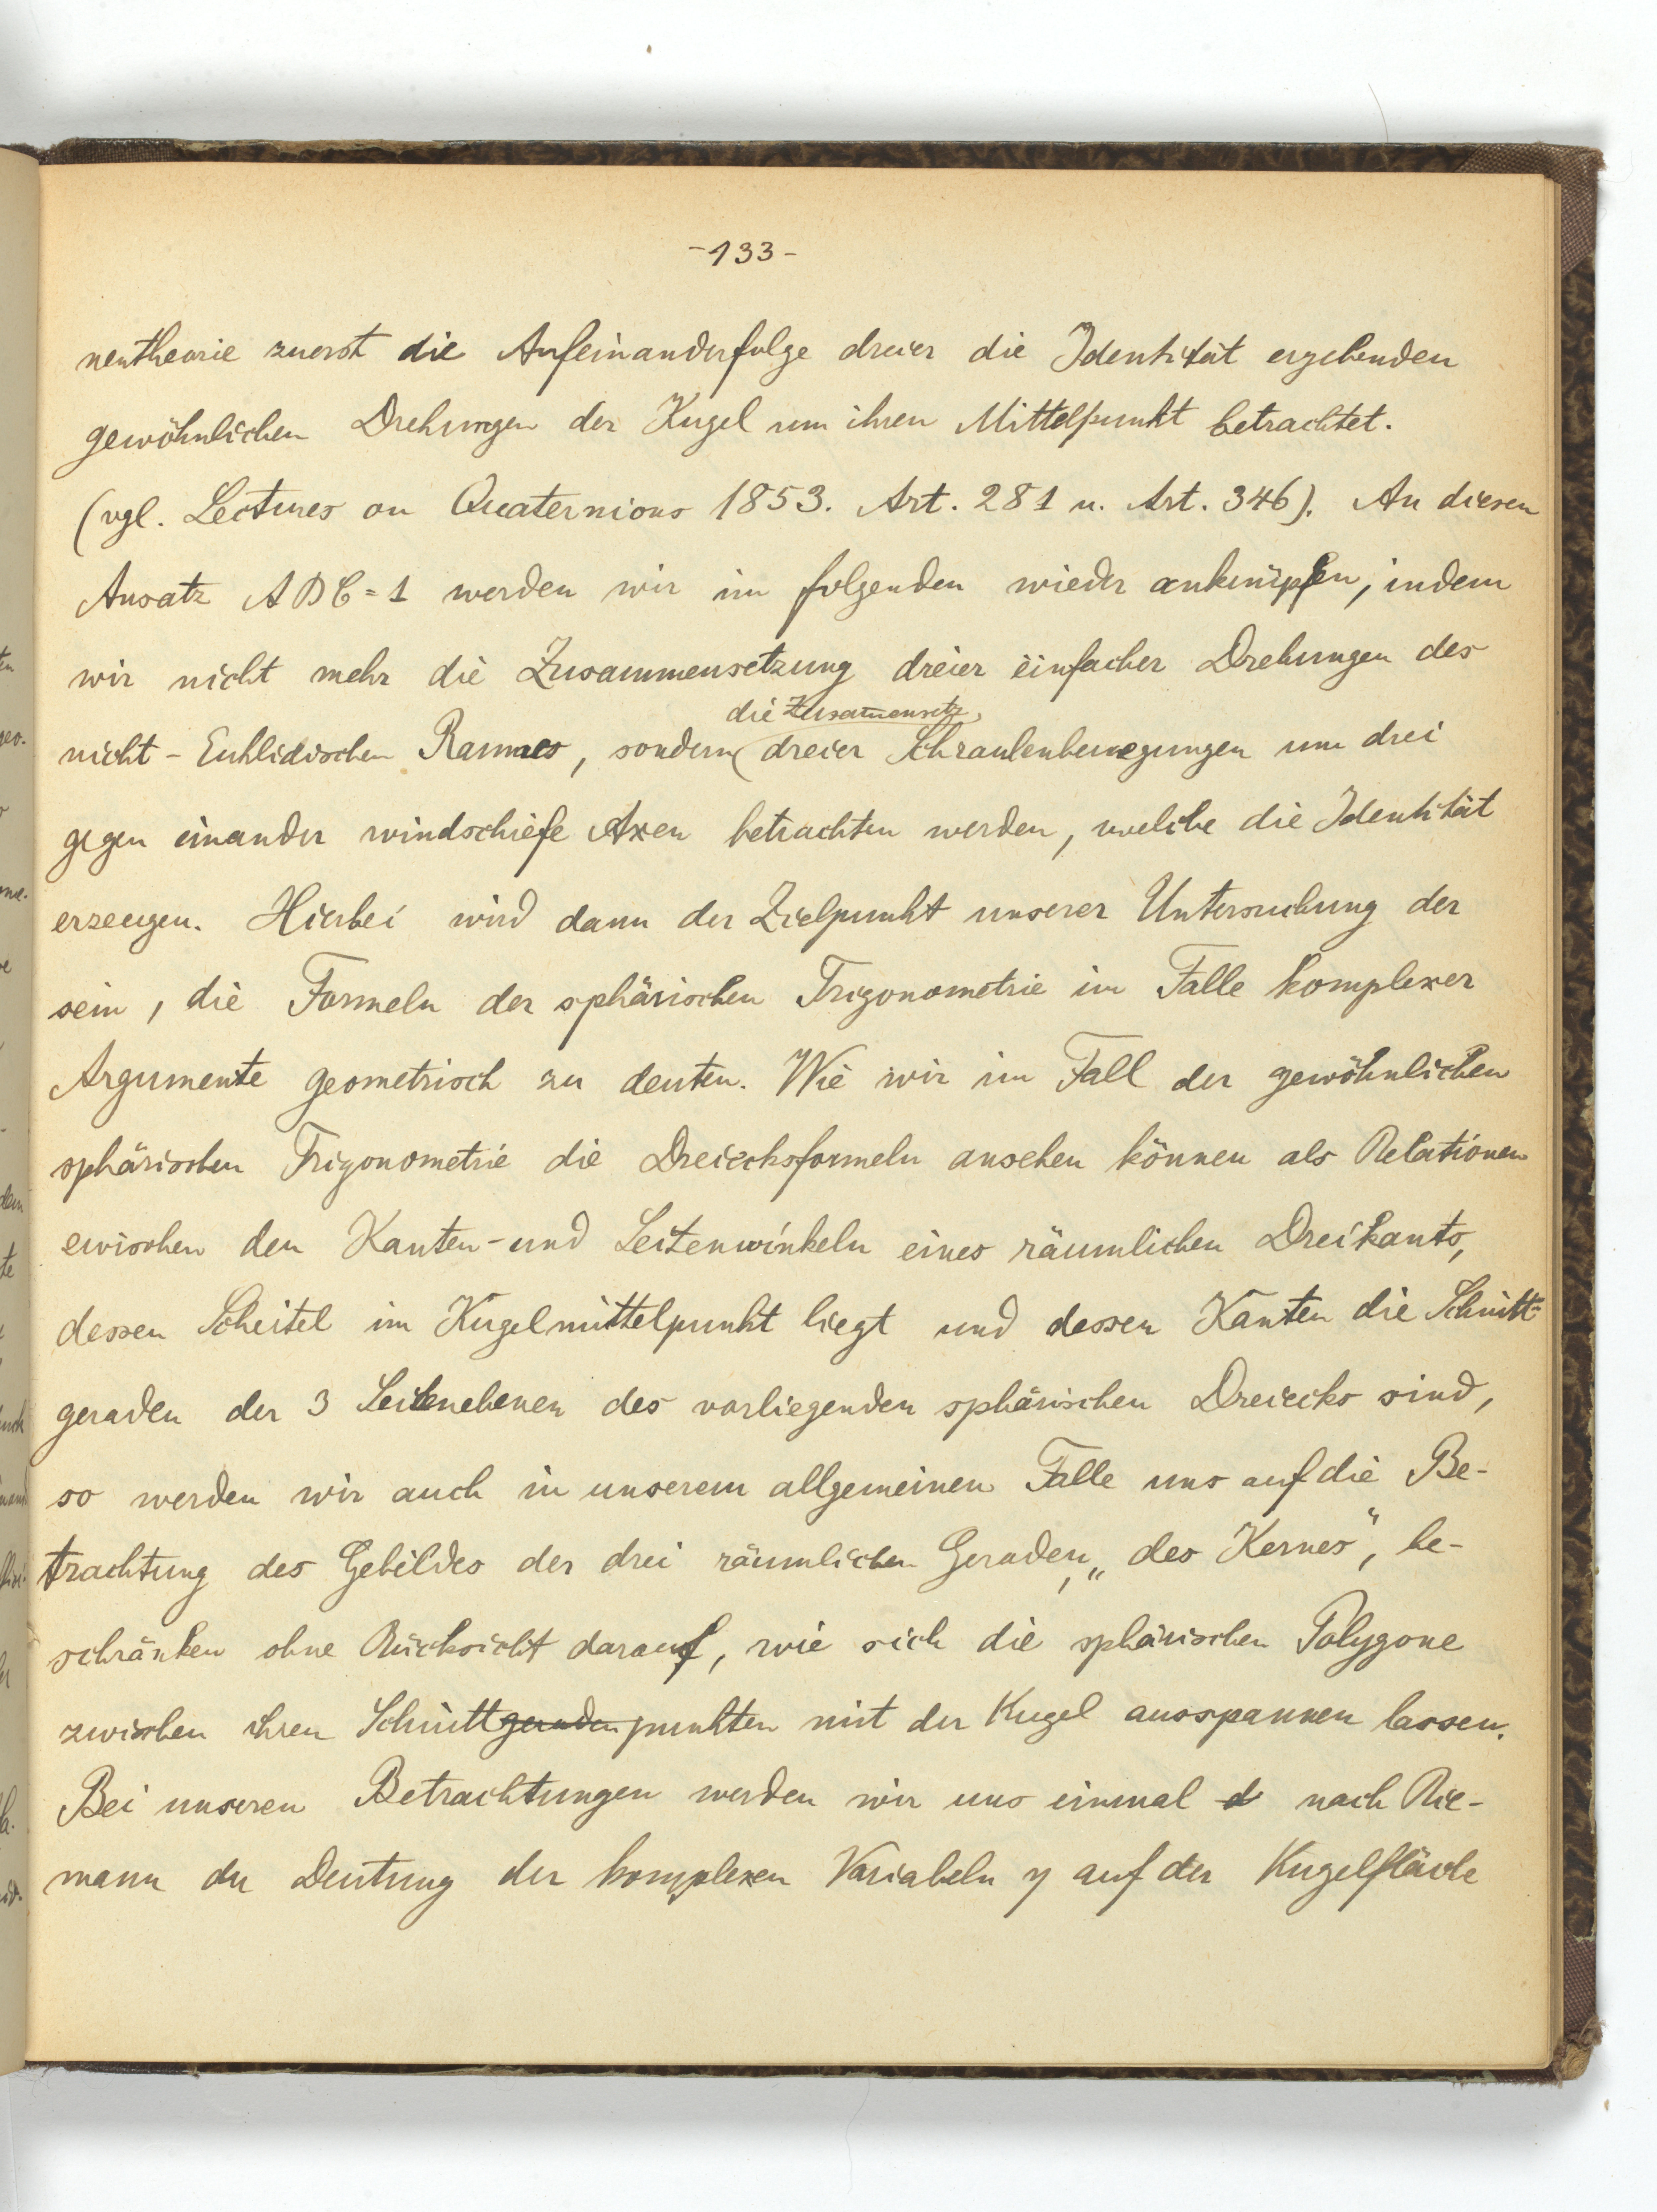 -133-
nentheorie zuerst die Aufeinanderfolge dreier die Identität ergebenden
gewöhnlichen Drehungen der Kugel um ihren Mittelpunkt betrachtet.
(vgl. Lectures on Quaternions 1853. Art. 281 u. Art. 346). An diesen
Ansatz ABC = 1 werden wir im folgenden wieder anknüpfen, indem
wir nicht mehr die Zusammensetzung dreier einfacher Drehungen des
die Zusam̅ensetz.
nicht-Euklidischen Raumes, sondern dreier Schraubenbewegungen um drei
gegen einander windschiefe Axen betrachten werden, welche die Identität
erzeugen. Hierbei wird dann der Zielpunkt unserer Untersuchung der
sein, die Formeln der sphärischen Trigonometrie im Falle komplexer
Argumente geometrisch zu deuten. Wie wir im Fall der gewöhnlichen
sphärischen Trigonometrie die Dreiecksformeln ansehen können als Relationen
zwischen den Kanten- und Seitenwinkeln eines räumlichen Dreikants,
dessen Scheitel im Kugelmittelpunkt liegt und dessen Kanten die Schnitt-
geraden der 3 Seitenebenen des vorliegenden sphärischen Dreiecks sind,
so werden wir auch in unserem allgemeinen Falle uns auf die Be-
trachtung des Gebildes der drei räumlichen Geraden, „des Kernes", be-
schränken ohne Rücksicht darauf, wie sich die sphärischen Polygone
zwischen ihren Schnittgeradenpunkten mit der Kugel ausspannen lassen.
Bei unseren Betrachtungen werden wir uns einmal d nach Rie-
mann der Deutung der komplexen Variabeln η auf der Kugelfläche